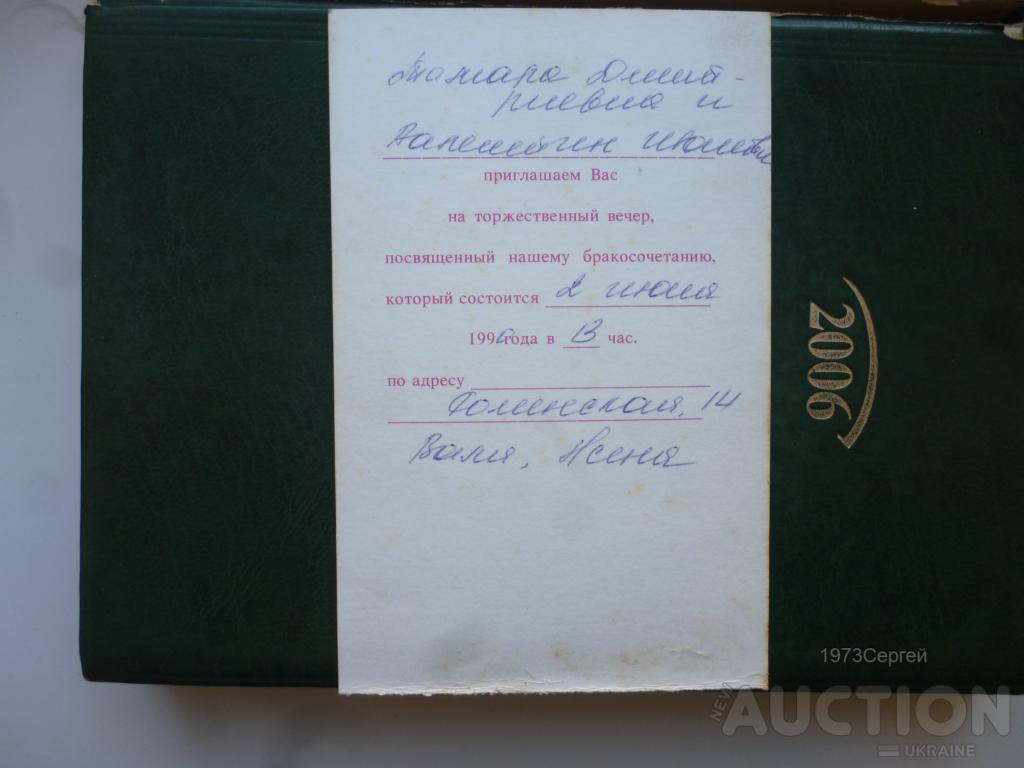 Тамара Дмит-
риевна и
Валентин Иванович
приглашаем Вас
на торжественный вечер,
посвященный нашему бракосочетанию,
который состоится 2 июня
1990года в 13 час.
по адресу
14
Валя,
2006
1973Сергей
NEW AUCTION
UKRAINE